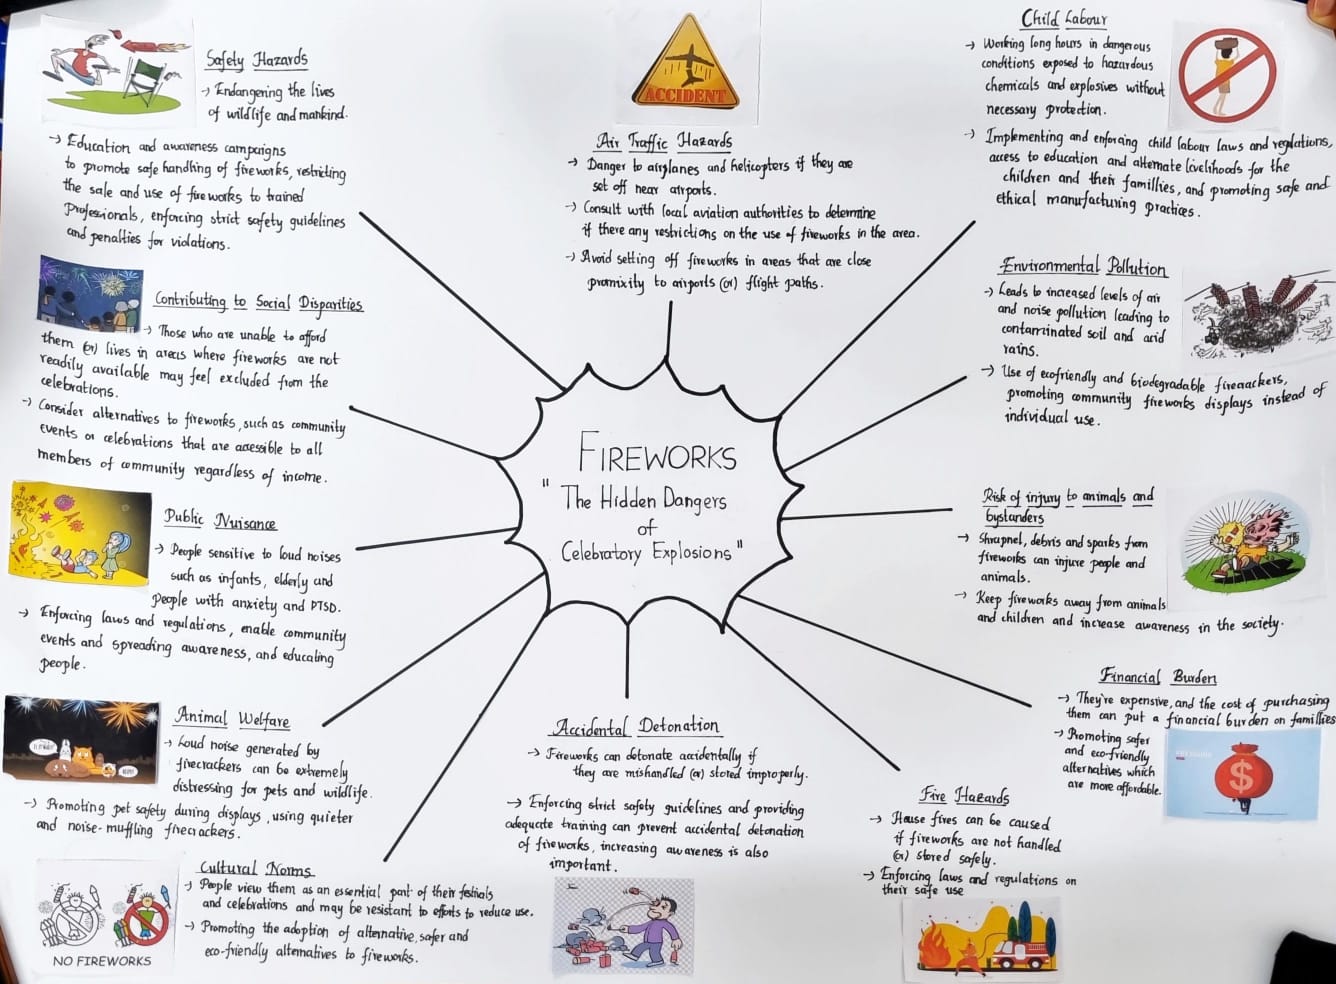 FIREWORKS
" The Hidden Dangers
of
Celebratory Explosions "
Safety Hazards
→ Endangering the lives
of wildlife and mankind.
→ Education and awareness campaigns
to promote safe handling of fireworks, restricting
the sale and use of fireworks to trained
Professionals, enforcing strict safety guidelines
and penalties for violations.
Contributing to Social Disparities
→ Those who are unable to afford
them (or) lives in areas where fireworks are not
readily available may feel excluded from the
celebrations.
→ Consider alternatives to fireworks, such as community
events or celebrations that are accessible to all
members of community regardless of income.
Public Nuisance
→ People sensitive to loud noises
such as infants, elderly and
people with anxiety and PTSD.
→ Enforcing laws and regulations, enable community
events and spreading awareness, and educating
people.
Animal Welfare
→ Loud noise generated by
firecrackers can be extremely
distressing for pets and wildlife.
→ Promoting pet safety during displays, using quieter
and noise-muffling firecrackers.
Cultural Norms
→ People view them as an essential part of their festivals
and celebrations and may be resistant to efforts to reduce use.
→ Promoting the adoption of alternative, safer and
eco-friendly alternatives to fireworks.
NO FIREWORKS
ACCIDENT
Air Traffic Hazards
→ Danger to airplanes and helicopters if they are
set off near airports.
→ Consult with local aviation authorities to determine
if there any restrictions on the use of fireworks in the area.
→ Avoid setting off fireworks in areas that are close
proximity to airports (or) flight paths.
Accidental Detonation
→ Fireworks can detonate accidentally if
they are mishandled (or) stored improperly.
→ Enforcing strict safety guidelines and providing
adequate training can prevent accidental detonation
of fireworks, increasing awareness is also
important.
Child Labour
→ Working long hours in dangerous
conditions exposed to hazardous
chemicals and explosives without
necessary protection.
→ Implementing and enforcing child labour laws and regulations,
access to education and alternate livelihoods for the
children and their famillies, and promoting safe and
ethical manufacturing practices.
Environmental Pollution
→ Leads to increased levels of air
and noise pollution leading to
contaminated soil and acid
rains.
→ Use of ecofriendly and biodegradable firecrackers,
promoting community fireworks displays instead of
individual use.
Risk of injury to animals and
bystanders
→ Shrapnel, debris and sparks from
fireworks can injure people and
animals.
→ Keep fireworks away from animals
and children and increase awareness in the society.
Financial Burden
→ They're expensive, and the cost of purchasing
them can put a financial burden on families
→ Promoting safer
and eco-friendly
alternatives which
are more affordable.
$
Fire Hazards
→ House fires can be caused
if fireworks are not handled
(or) stored safely.
→ Enforcing laws and regulations on
their safe use